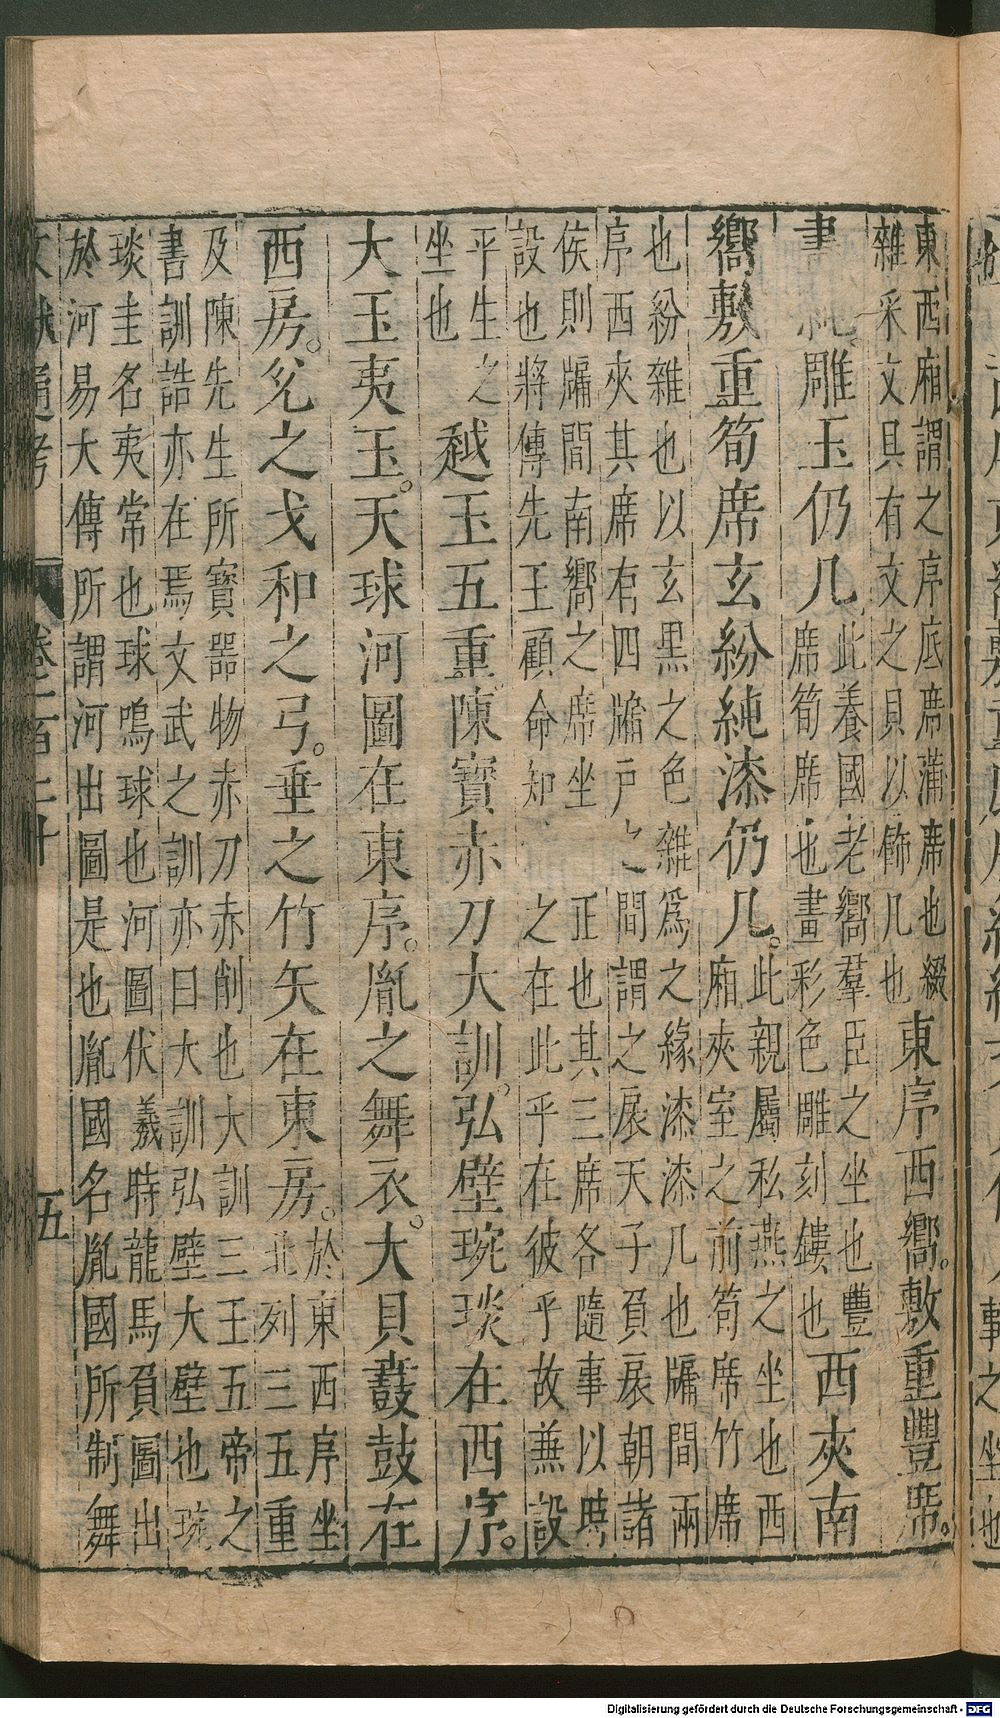 東西廂謂之序底席蒲席也綴
雜采文具有文之貝以飾几也
東序西嚮。敷重豐席。
畫純。雕玉仍几
此養國老嚮羣臣之坐也豐
席筍席也畫彩色雕刻鏤也
西夾南
嚮敷重筍席玄紛純漆仍几。
此親屬私燕之坐也西
廂夾室之前筍席竹席
也紛雜也以玄黑之色雜爲之緣漆漆几也牖間兩
序西夾其席有四牖戶之間謂之扆天子負扆朝諸
侯則牖間南嚮之席坐正也其三席各隨事以時
設也將傳先王顧命知之在此乎在彼乎故兼設
平生之
坐也
越玉五重陳寶赤刀大訓。弘璧琬琰在西序。
大玉夷玉。天球河圖在東序。胤之舞衣。大貝鼖鼓在
西房。兊之戈和之弓。垂之竹矢在東房。
於東西序坐
北列三五重
及陳先生所寶噐物赤刀赤削也大訓三王五帝之
書訓誥亦在焉文武之訓亦曰大訓弘璧大璧也琬
琰圭名夷常也球鳴球也河圖伏羲時龍馬負圖出
於河易大傳所謂河出圖是也胤國名胤國所制舞
文獻通考 卷一百二十 五
事之坐也
Digitalisierung gefördert durch die Deutsche Forschungsgemeinschaft - DFG